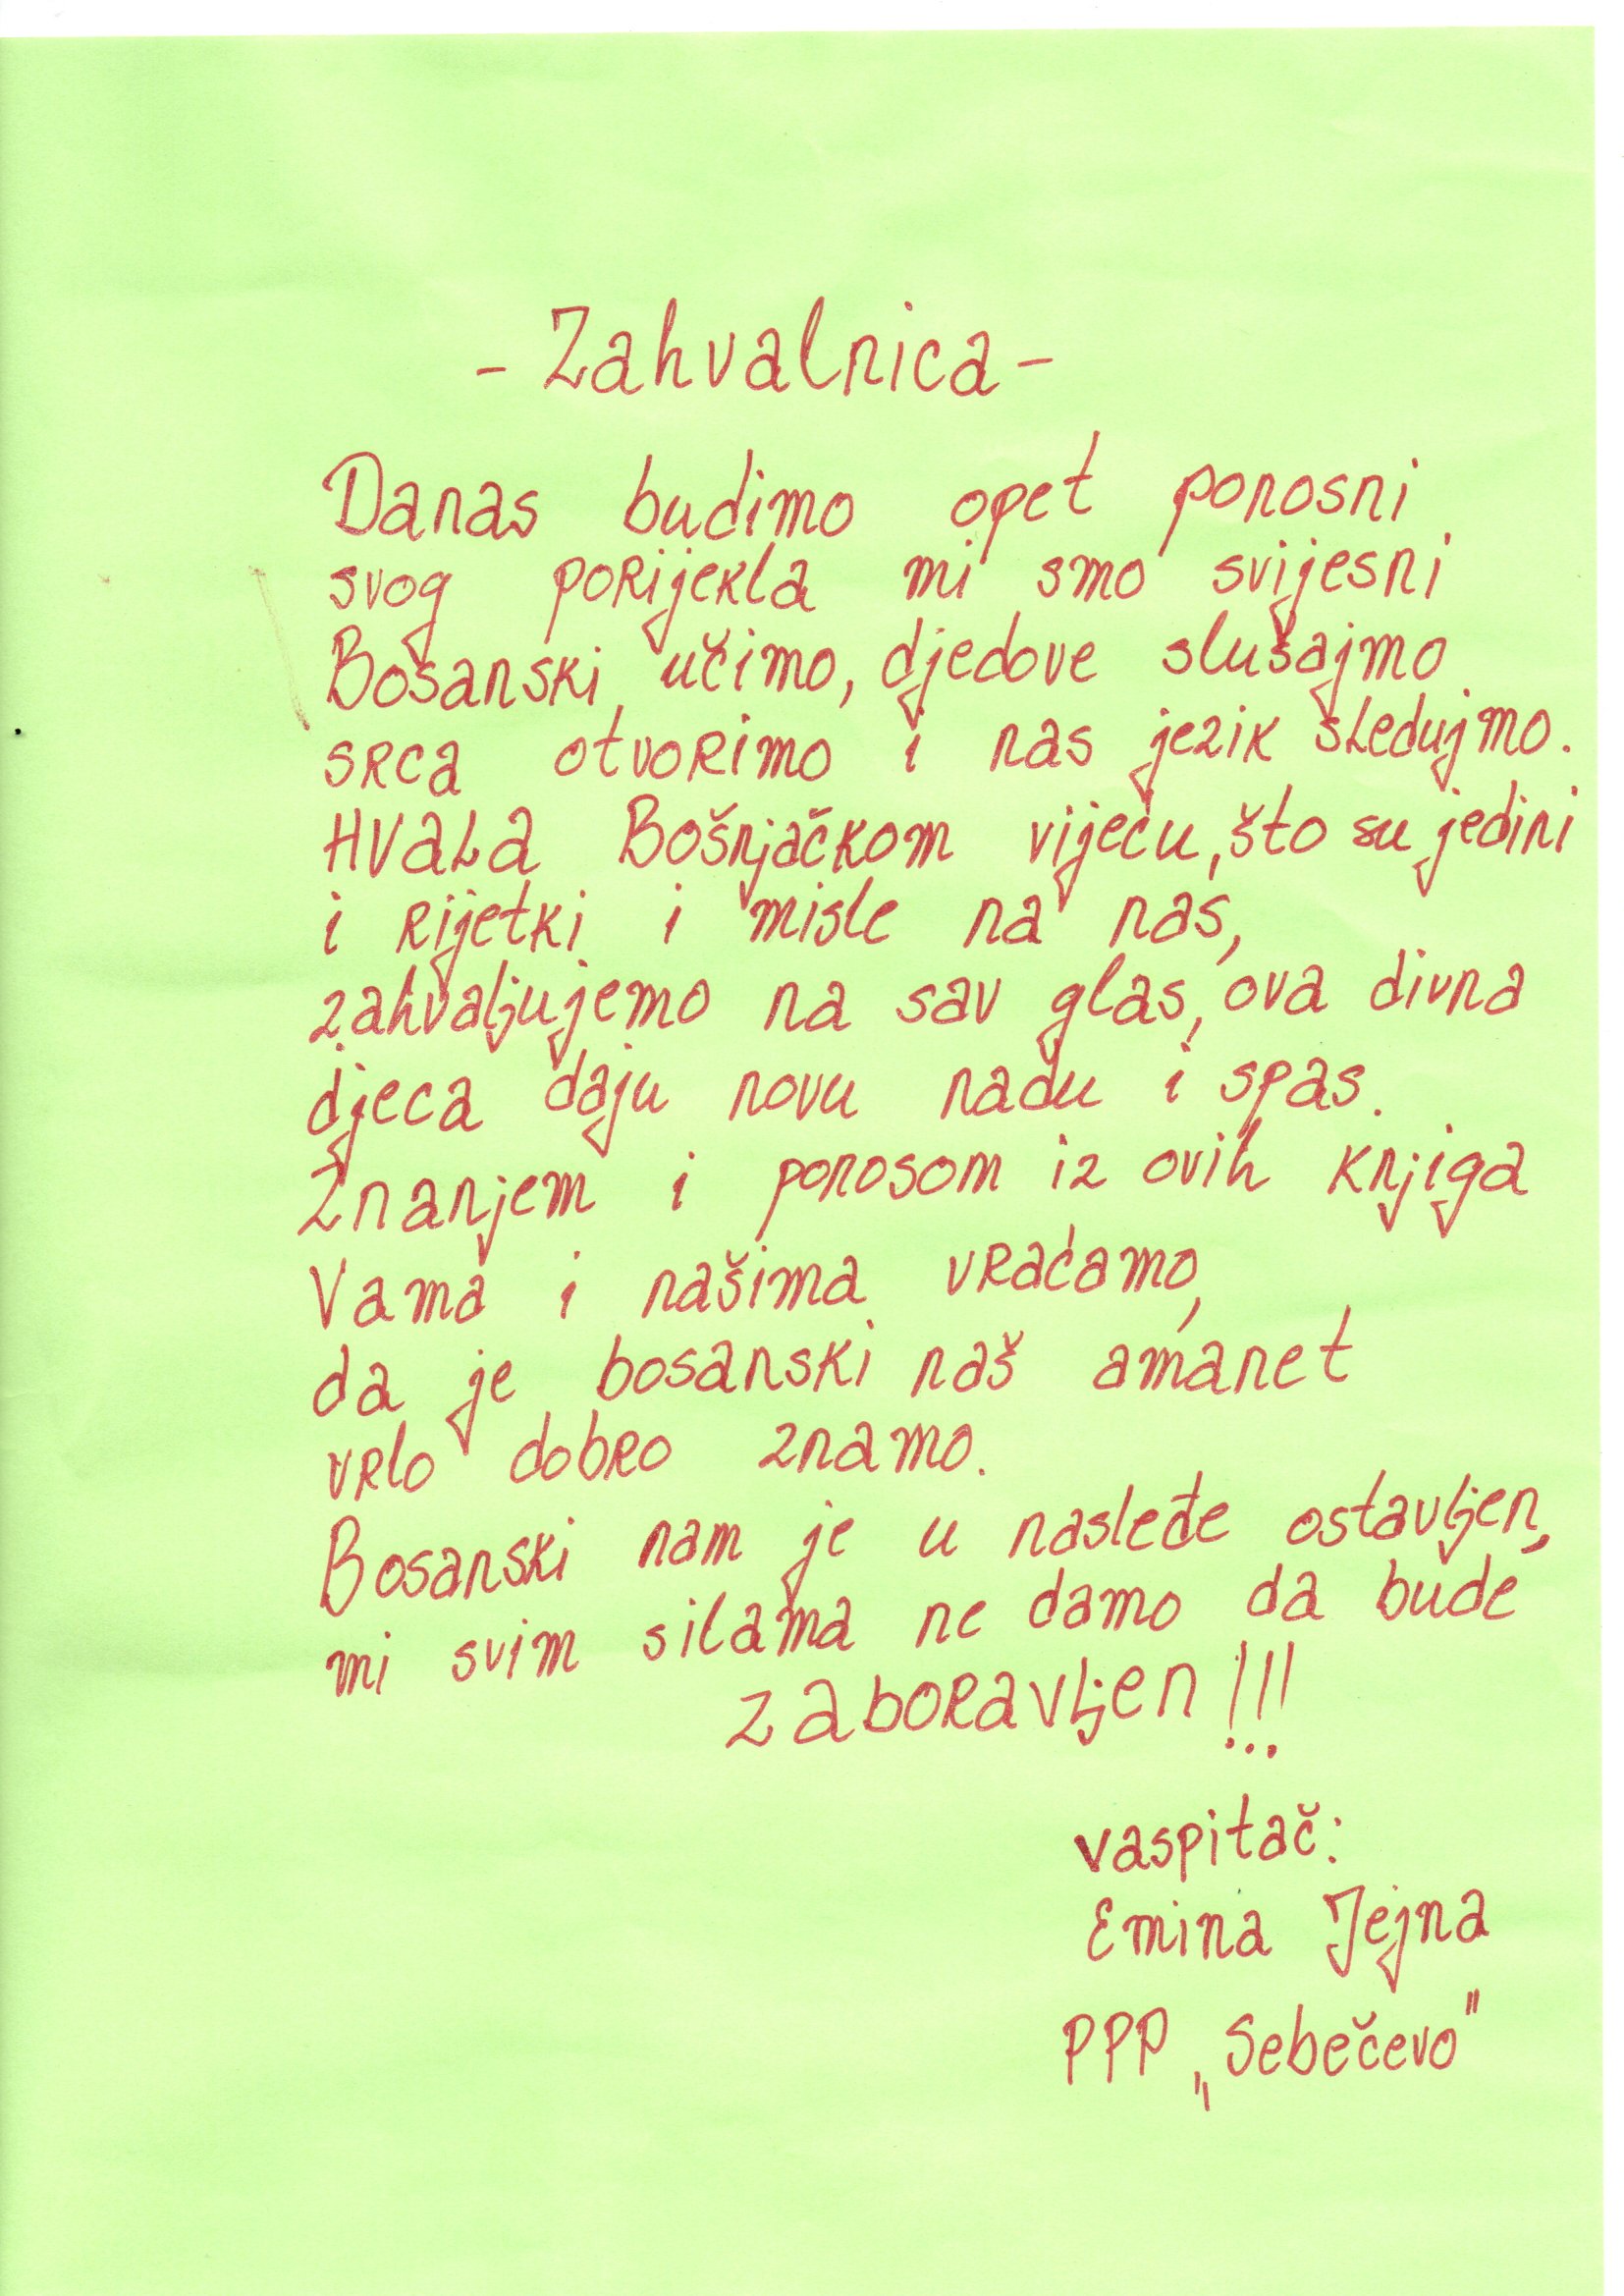 - Zahvalnica -
Danas budimo opet ponosni
svog porijekla mi smo svijesni
Bosanski učimo, djedove slušajmo
srca otvorimo i nas jezik sledujmo.
HVALA Bošnjačkom vijeću, što su jedini
i rijetki i misle na nas,
zahvaljujemo na sav glas, ova divna
djeca daju novu nadu i spas.
Znanjem i ponosom iz ovih knjiga
Vama i našima vraćamo,
da je bosanski naš amanet
vrlo dobro znamo.
Bosanski nam je u nasleđe ostavljen,
mi svim silama ne damo da bude
zaboravljen!!!
vaspitač:
Emina Jejna
PPP „Sebečevo"